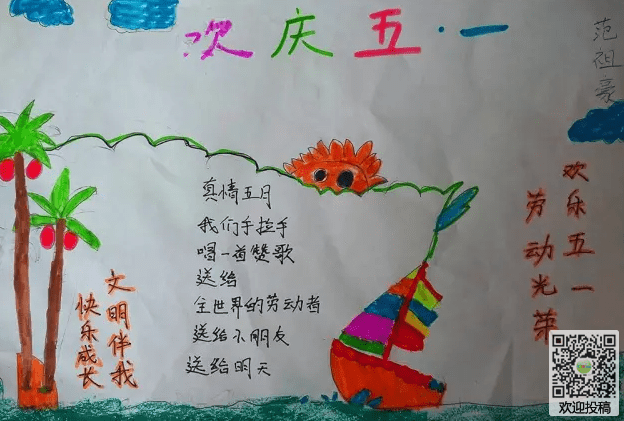 欢庆五·一
范祖豪
真情五月
我们手拉手
唱一道赞歌
送给
全世界的劳动者
送给小朋友
送给明天
欢乐五一
劳动光荣
文明伴我
快乐成长
欢迎投稿